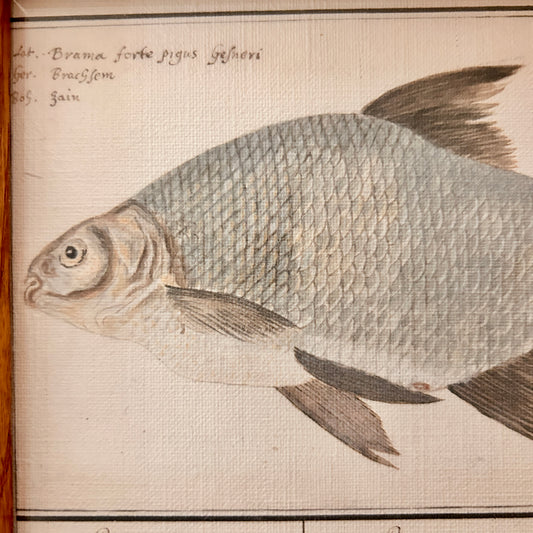 Lat. - Brama forte pigus Gesneri
Ger. Brachsem
Boh. Zain